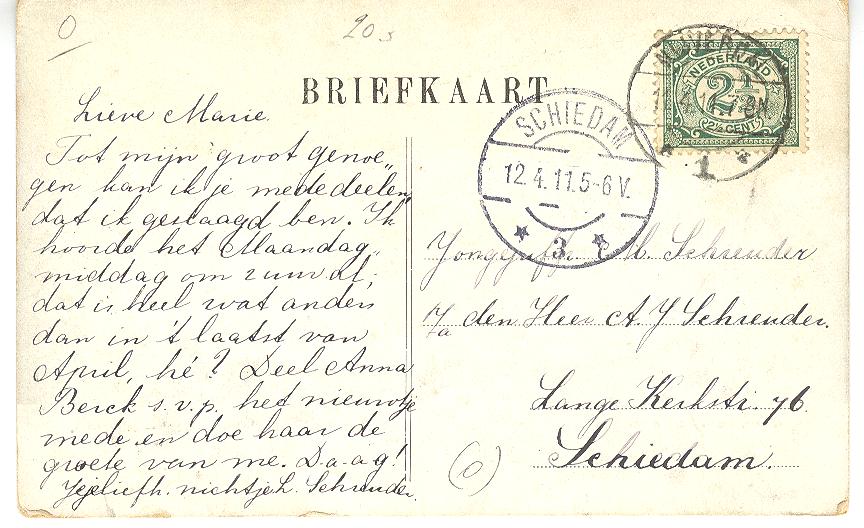 0
20
BRIEFKAART
NEDERLAND
2½
2½ CENT
SCHIEDAM
12.4.11.5-6 V.
3
1
Lieve Marie.
Tot mijn groot genoe„
gen kan ik je mededeelen,
dat ik geslaagd ben. Ik
hoorde het Maandag„
middag om 2 uur al;
dat is heel wat anders
dan in 't laatst van
April, hé? Deel Anna
Berck s.v.p. het nieuwtje
mede en doe haar de
groete van me. Da-a-g!
nichtje L. Schreuder.
M. Schreuder
p/a den Heer A. J Schreuder.
Lange Kerkstr. 76
Schiedam.
(0)